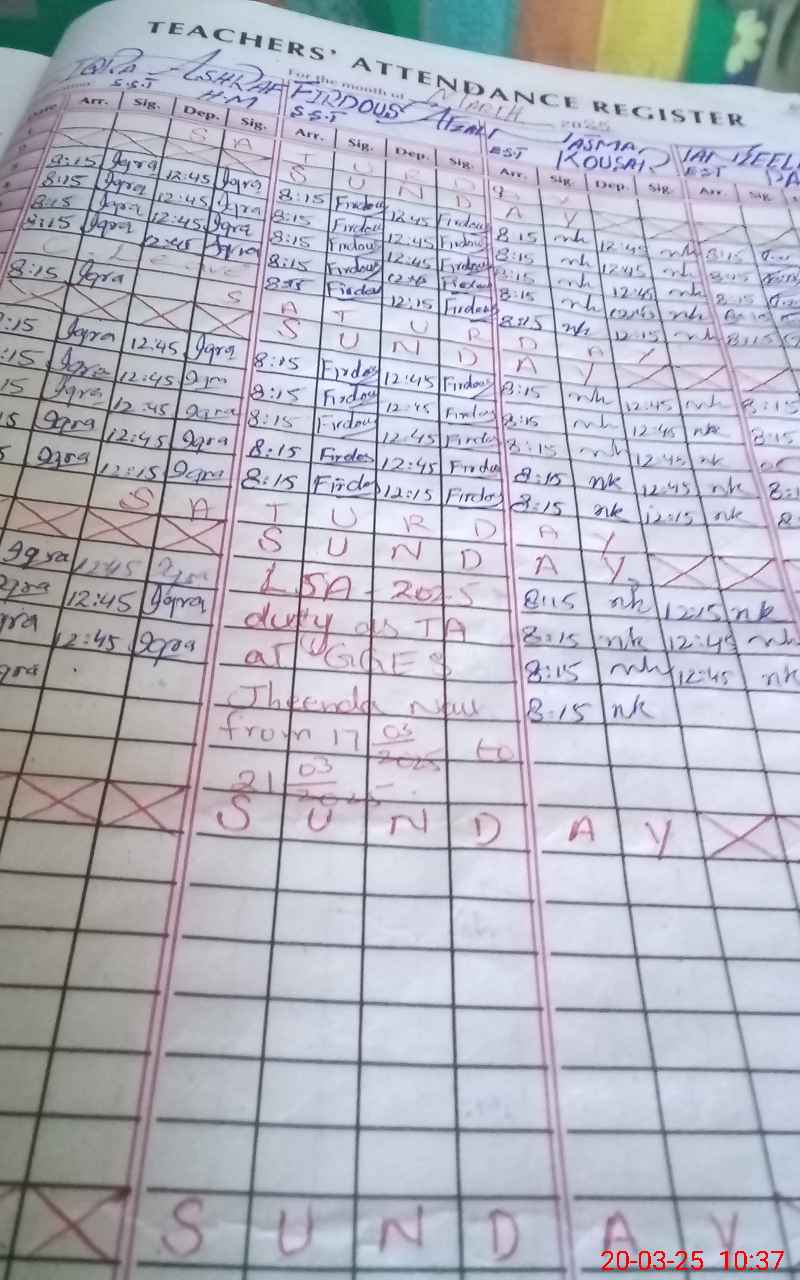 TEACHERS' ATTENDANCE REGISTER
For the month of March 2025
IQRA ASHRAF FIRDOUS AFZAL
S.S.T H.M S.S.T EST KOUSAR EST
Arr. Sig. Dep. Sig. Arr. Sig. Dep. Sig. Arr. Sig. Dep. Sig. Arr. Sig.
S A T U R D A Y
S U N D A Y
8:15 Iqra 12:45 Iqra 8:15 Firdous 12:45 Firdous 8:15 nk 12:45 nk 8:15
8:15 Iqra 12:45 Iqra 8:15 Firdous 12:45 Firdous 8:15 nk 12:45 nk 8:15
8:15 Iqra 12:45 Iqra 8:15 Firdous 12:45 Firdous 8:15 nk 12:45 nk 8:15
8:15 Iqra 12:45 Iqra 8:15 Firdous Firdous 8:15 nk 12:45 nk 8:15
C. Leave 8:15 Firdous 12:15 Firdous 8:15 nk 12:15 nk 8:15
8:15 Iqra
S A T U R D A Y
S U N D A Y
:15 Iqra 12:45 Iqra 8:15 Firdous 12:45 Firdous 8:15 nk 12:45 nk 8:15
:15 Iqra 12:45 Iqra 8:15 Firdous 12:45 Firdous 8:15 nk 12:45 nk 8:15
15 Iqra 12:45 Iqra 8:15 Firdous 12:45 Firdous 8:15 nk 12:45 nk
5 Iqra 12:45 Iqra 8:15 Firdos 12:45 Firdos 8:15 nk 12:45 nk 8:1
5 Iqra 12:15 Iqra 8:15 Firdos 12:15 Firdos 8:15 nk 12:15 nk 8:
S A T U R D A Y
S U N D A Y
Iqra 12:45 Iqra LSA - 2025 8:15 nk 12:15 nk
Iqra 12:45 Iqra duty as TA 8:15 nk 12:45 nk
qra 12:45 Iqra at GGES 8:15 nk 12:45 nk
qra Jheenda New 8:15 nk
from 17 03 2025 to
21 03 2025
S U N D A Y
S U N D A Y
20-03-25 10:37